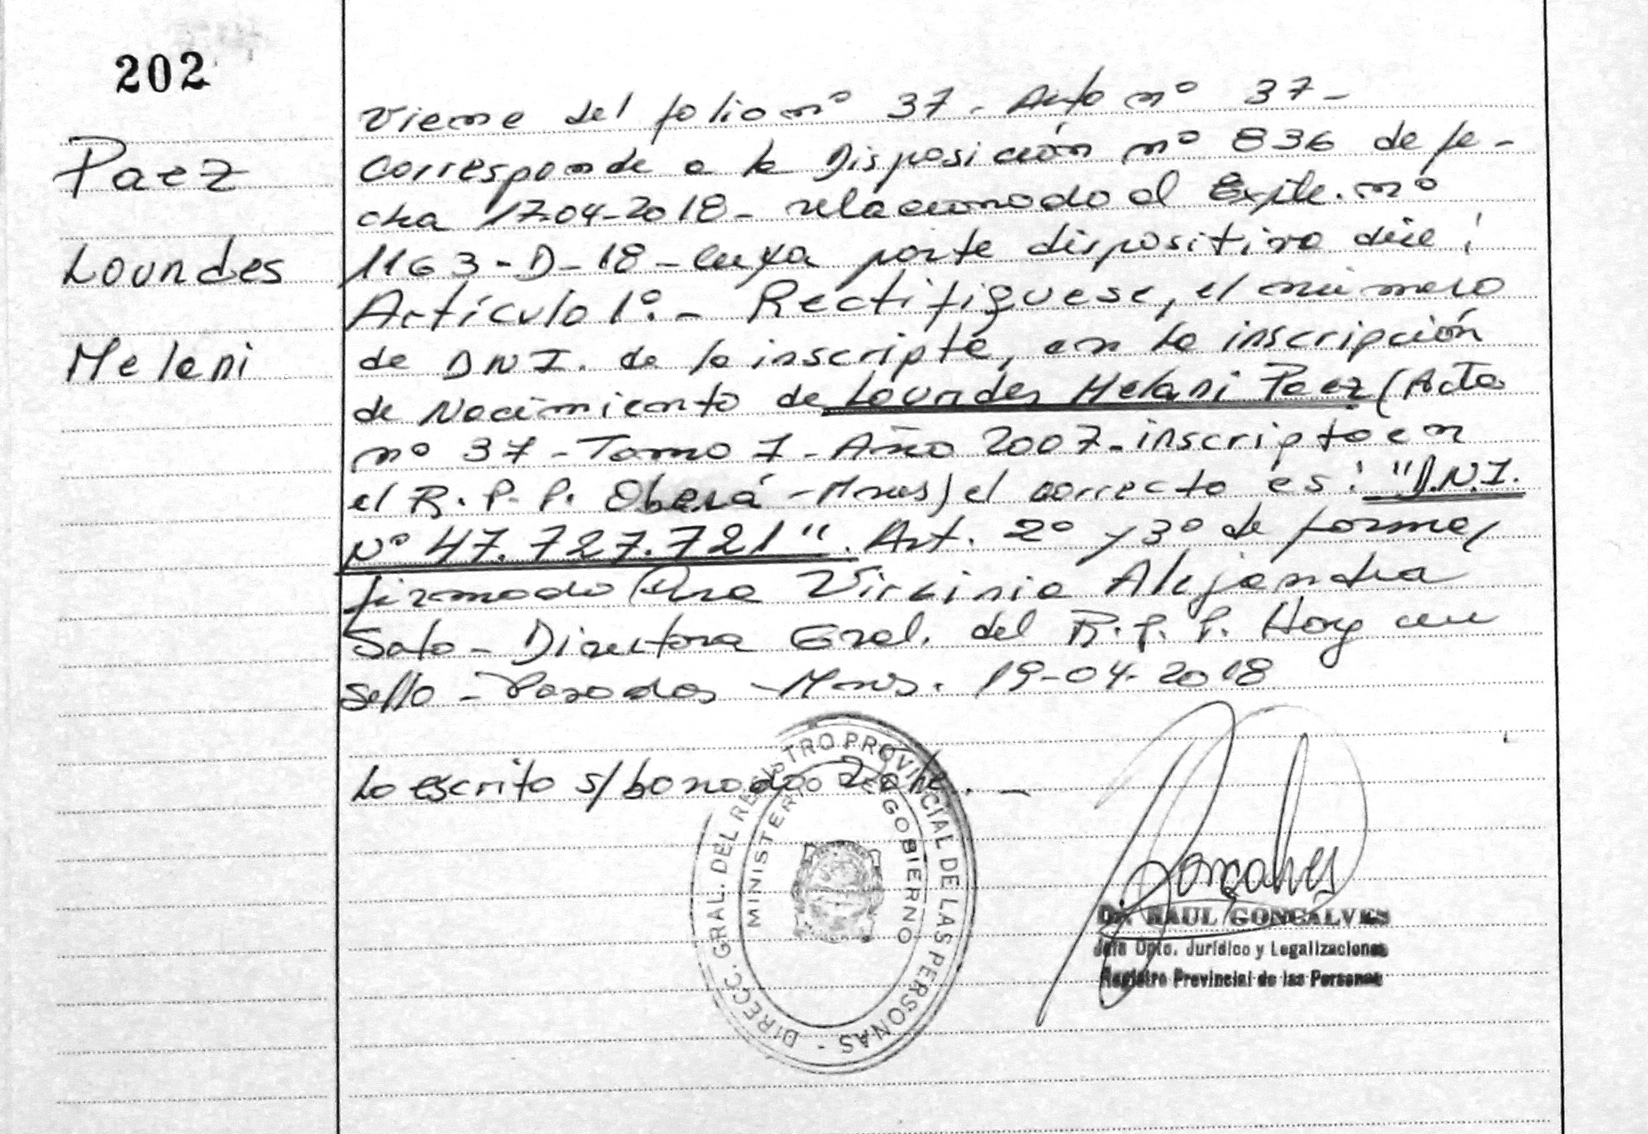 202
Paez
Lourdes
Melani
Viene del folio nº 37 - Acto nº 37 -
Corresponde a la Disposición nº 836 de fe-
cha 17-04-2018 - relacionado al Expte. nº
1163-D-18 - cuya parte dispositiva dice:
Artículo 1º. - Rectifíquese, el número
de DNI. de la inscripta, en la inscripción
de Nacimiento de Lourdes Melani Paez (Acta
nº 37 - Tomo 1 - Año 2007 - inscripto en
el R. P. P. Oberá - Mnes) el correcto es: "D.N.I.
Nº 47.727.721". Art. 2º y 3º de forma,
firmado Dra Virginia Alejandra
Soto - Directora Gral. del R. P. P. Hay un
sello - Posadas - Mnes. 19-04-2018
Lo escrito s/borrado 2018 vale. -
DIRECC. GRAL. DEL REGISTRO PROVINCIAL DE LAS PERSONAS -
MINISTERIO DE GOBIERNO
Gonçalves
Dr. RAUL GONCALVES
Jefe Dpto. Jurídico y Legalizaciones
Registro Provincial de las Personas